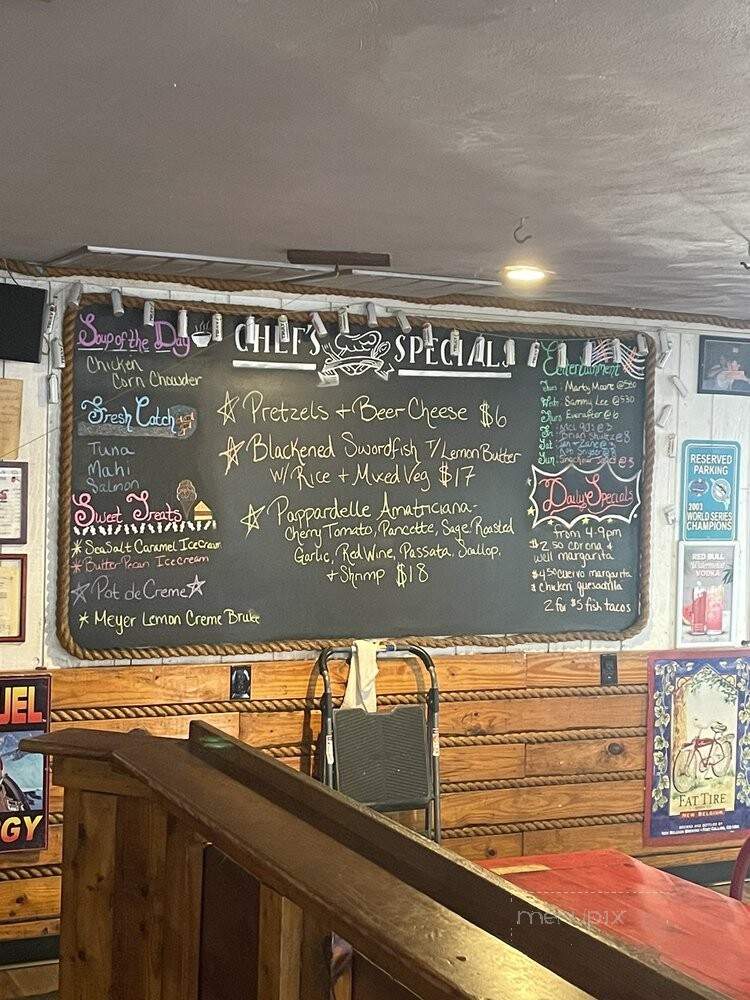 Soup of the Day
Chicken
Corn Chowder
Fresh Catch
Tuna
Mahi
Salmon
Sweet Treats
Sea Salt Caramel Icecream
Butter Pecan Icecream
Pot de Creme
Meyer Lemon Creme Brulee
CHEF'S SPECIALS
Pretzels + Beer Cheese $6
Blackened Swordfish T/ Lemon Butter
w/ Rice + Mixed Veg $17
Pappardelle Amatriciana-
Cherry Tomato, Pancette, Sage Roasted
Garlic, Red Wine, Passata, Scallop,
+ Shrimp $18
Entertainment
Marty Moore @530
Sammy Lee @530
Thurs Everafter @6
Daily Specials
from 4-9pm
$2.50 corona &
well margarita
$4.50 cuervo margarita
& chicken quesadilla
2 for $5 fish tacos
RESERVED
PARKING
2001
WORLD SERIES
CHAMPIONS
RED BULL
Watermelon
VODKA
UEL
RGY
FAT TIRE
NEW BELGIUM
menupix